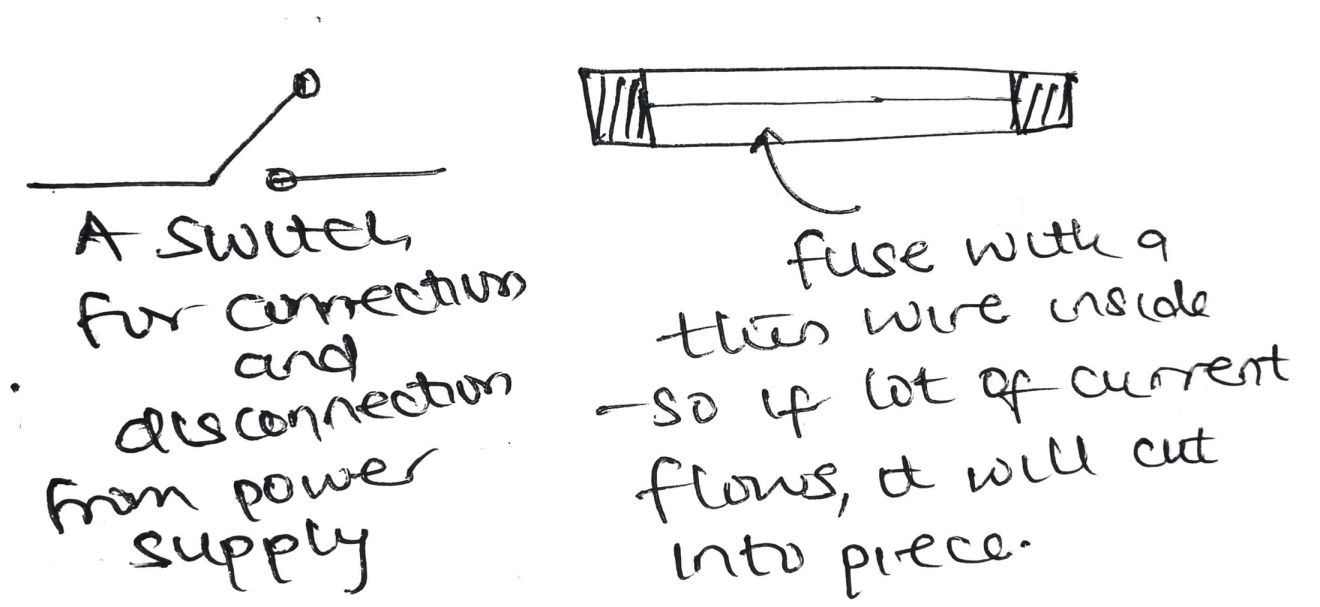 A switch
for connection
and
disconnection
from power
supply
fuse with a
thin wire inside
-so if lot of current
flows, it will cut
into piece.